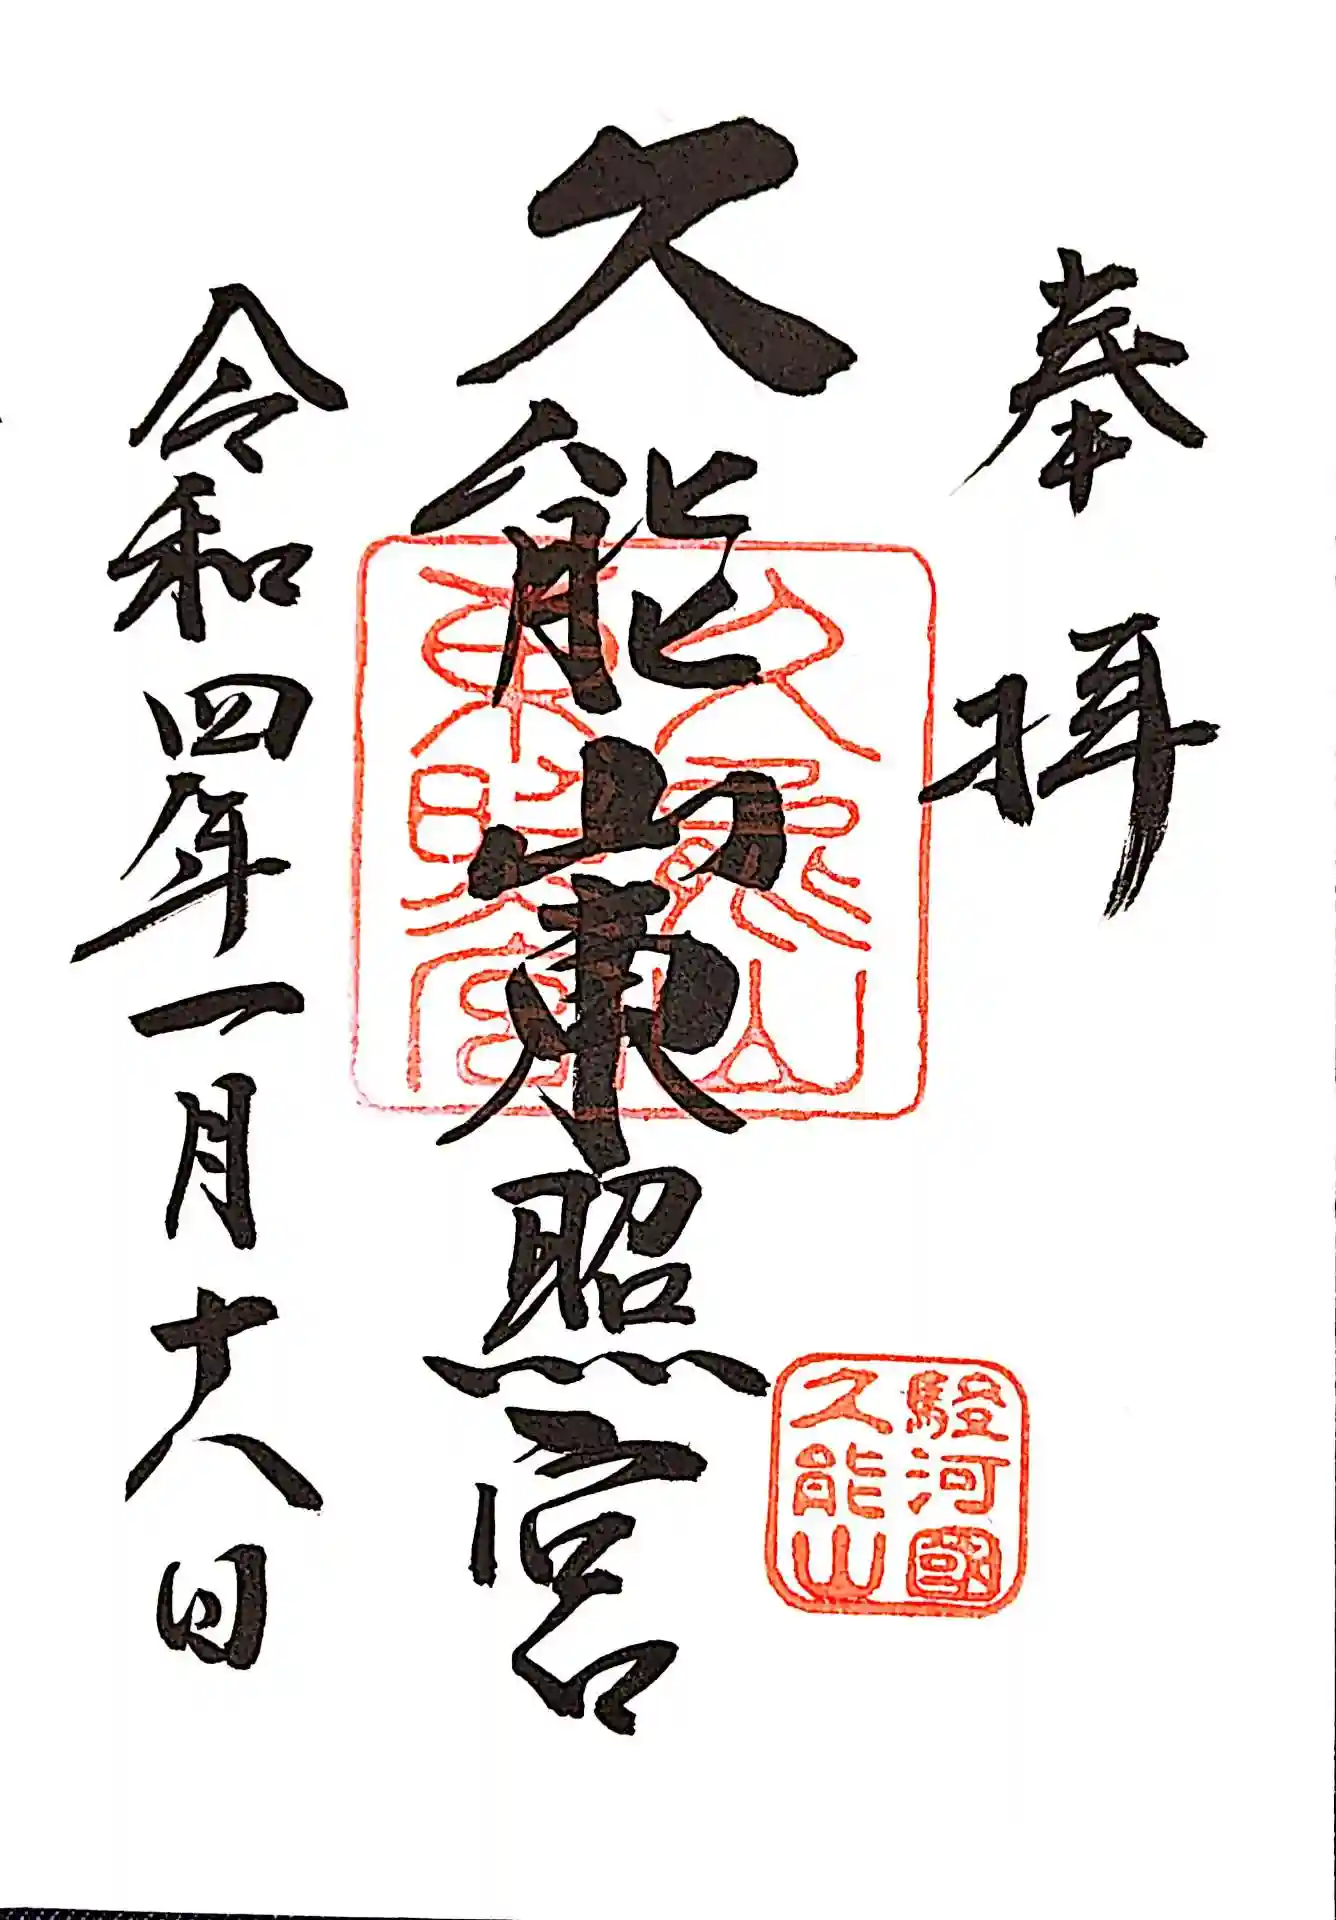 奉拝
久能山東照宮
令和四年一月十八日
久能山
東照宮
駿河國
久能山